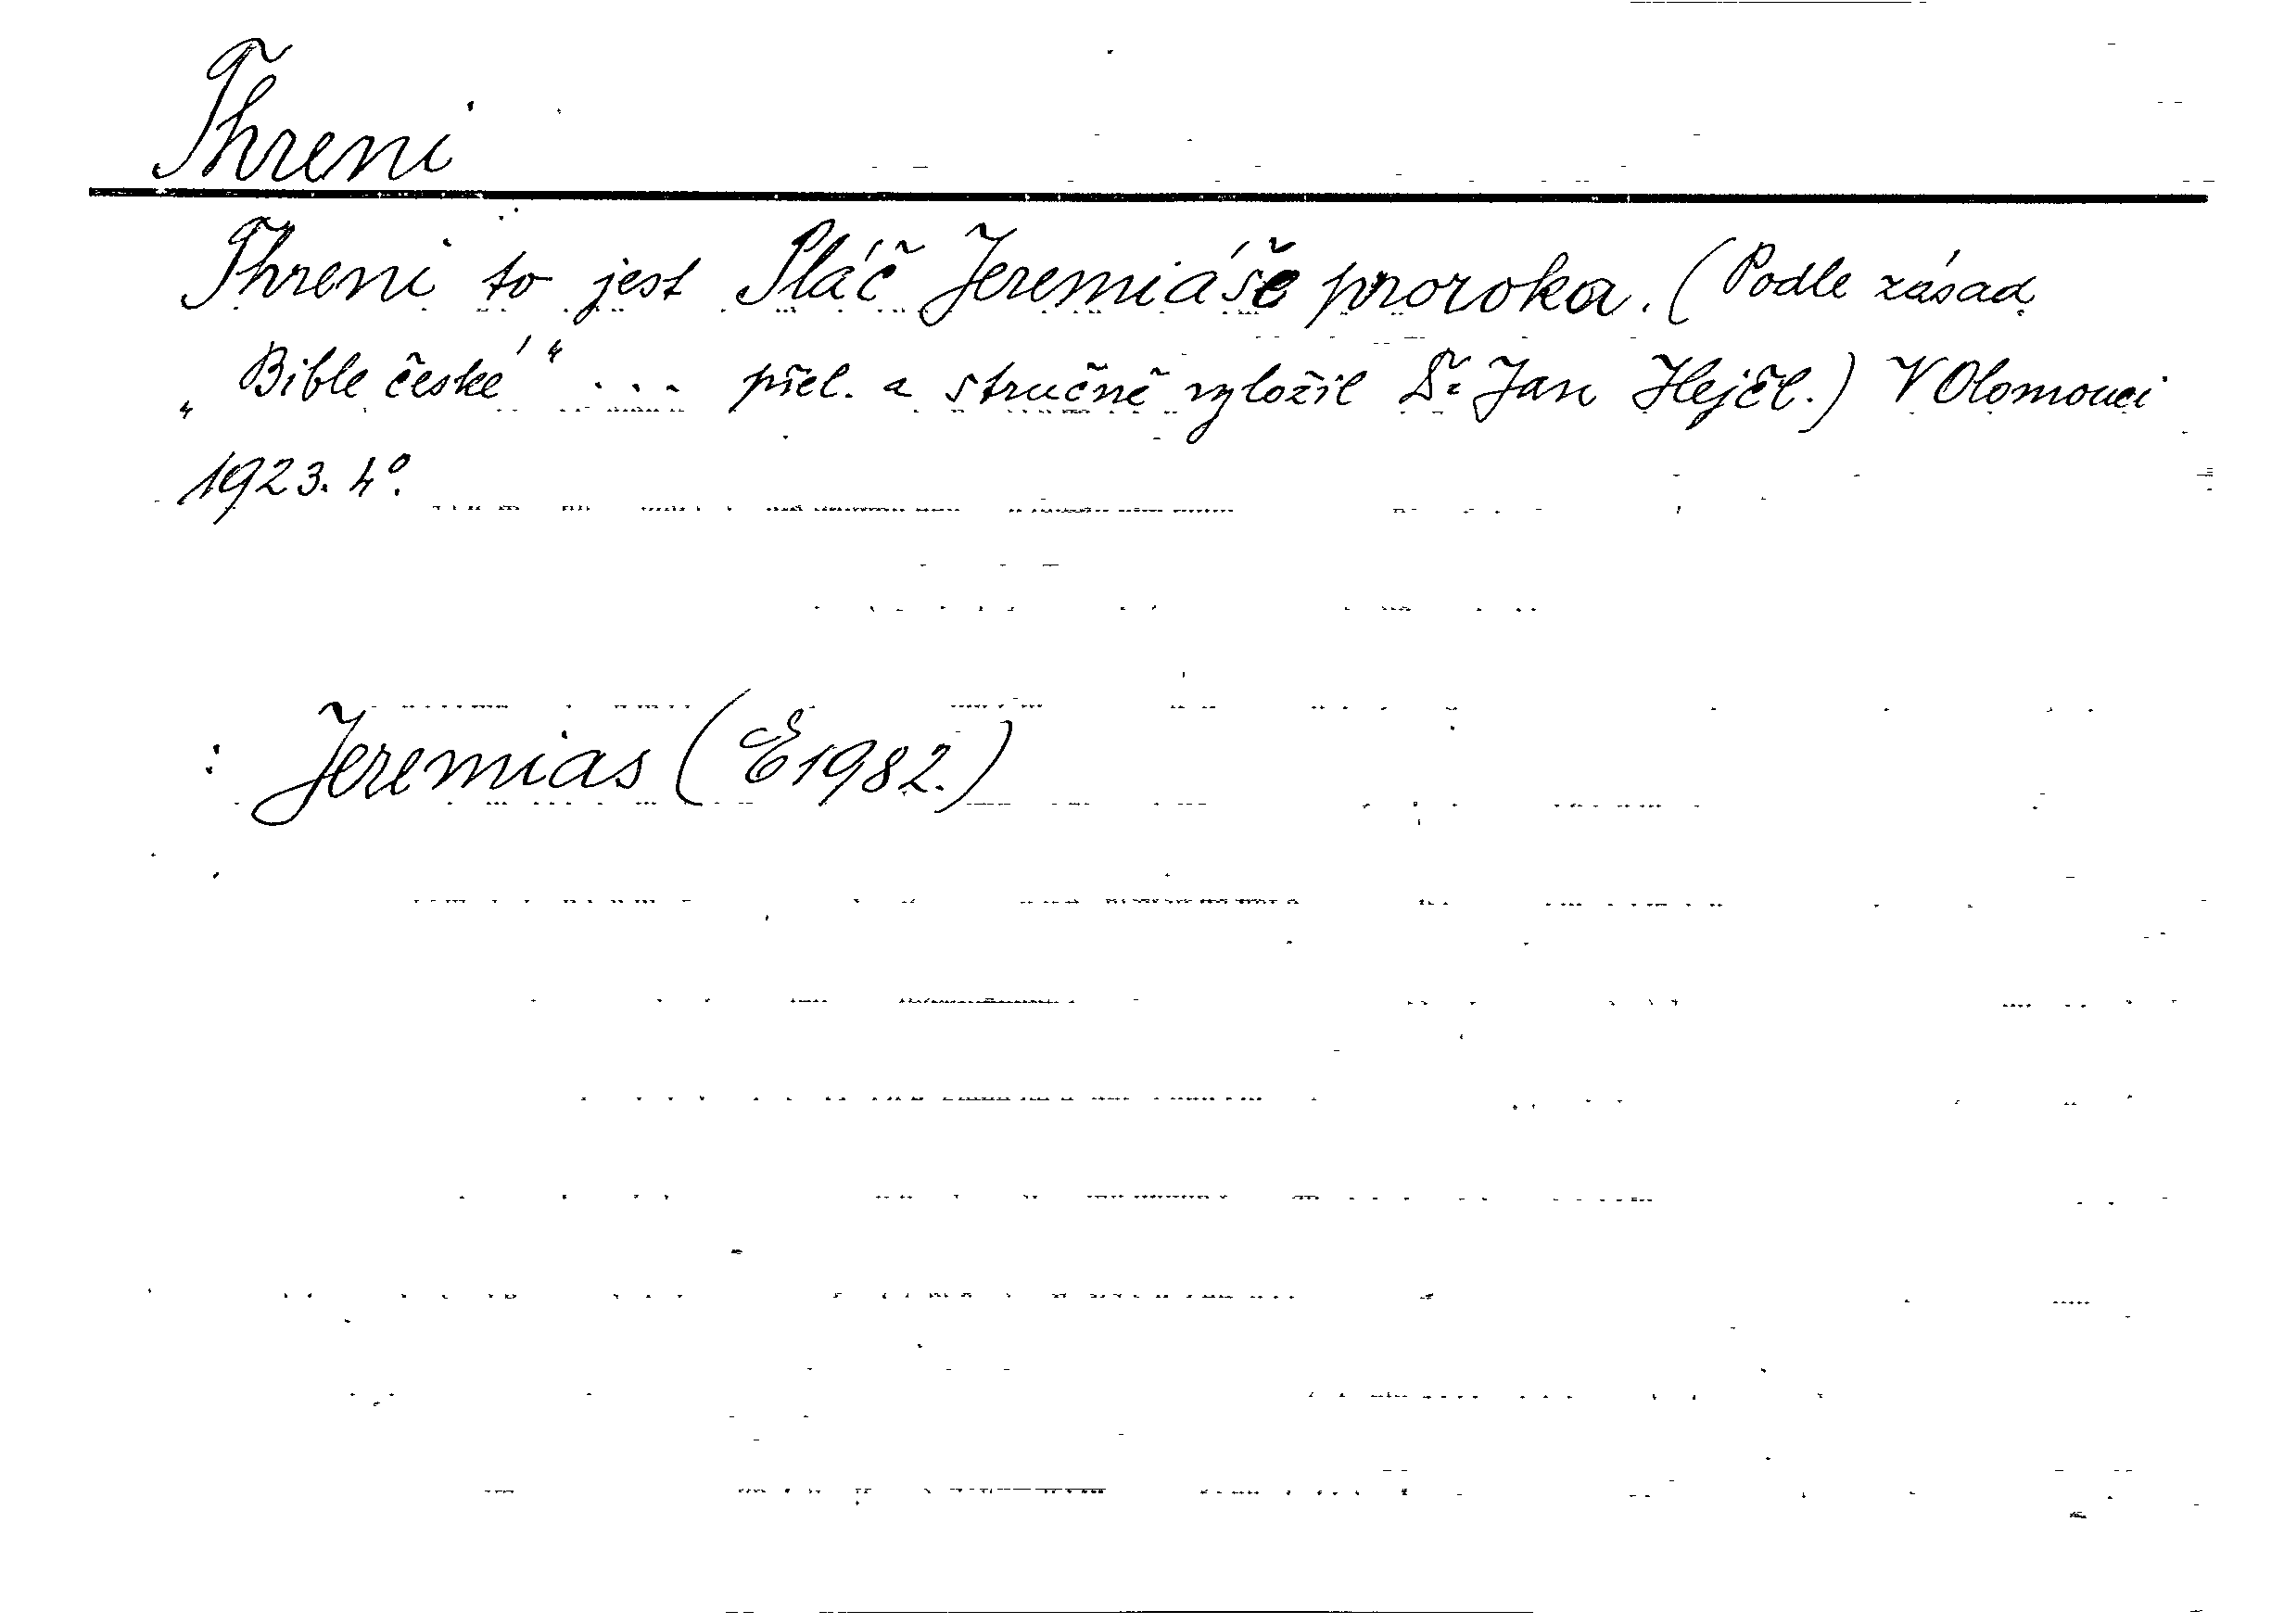 Threni
Threni to jest Pláč Jeremiáše proroka. (Podle zásad
„Bible české“ ... přel. a stručně vyložil Dr Jan Hejčl.) V Olomouci
1923. 4°.
: Jeremias (E 1982.)